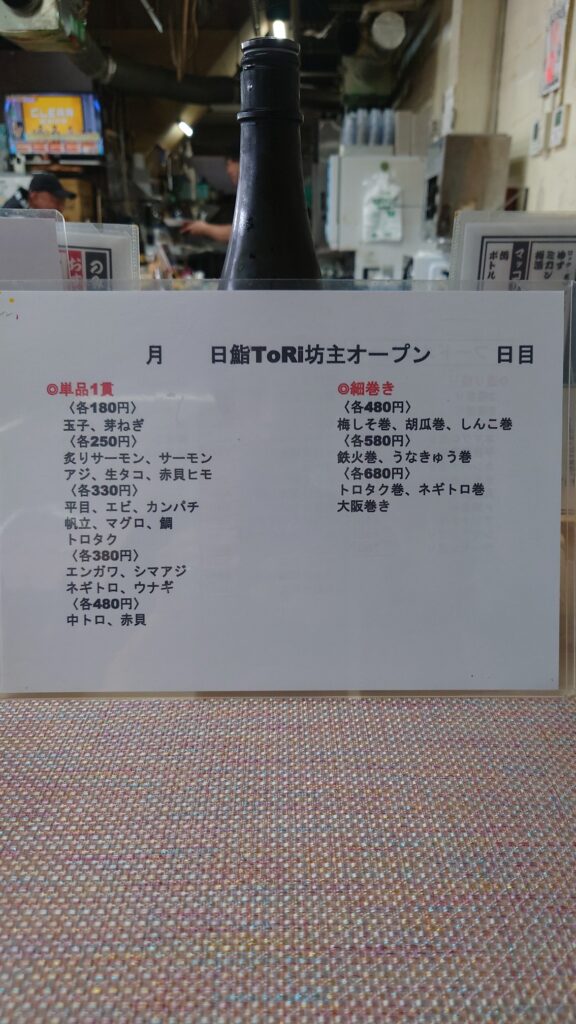 月 日鮨ToRi坊主オープン 日目
◎単品1貫
〈各180円〉
玉子、芽ねぎ
〈各250円〉
炙りサーモン、サーモン
アジ、生タコ、赤貝ヒモ
〈各330円〉
平目、エビ、カンパチ
帆立、マグロ、鯛
トロタク
〈各380円〉
エンガワ、シマアジ
ネギトロ、ウナギ
〈各480円〉
中トロ、赤貝
◎細巻き
〈各480円〉
梅しそ巻、胡瓜巻、しんこ巻
〈各580円〉
鉄火巻、うなきゅう巻
〈各680円〉
トロタク巻、ネギトロ巻
大阪巻き
マッコ
ボトル